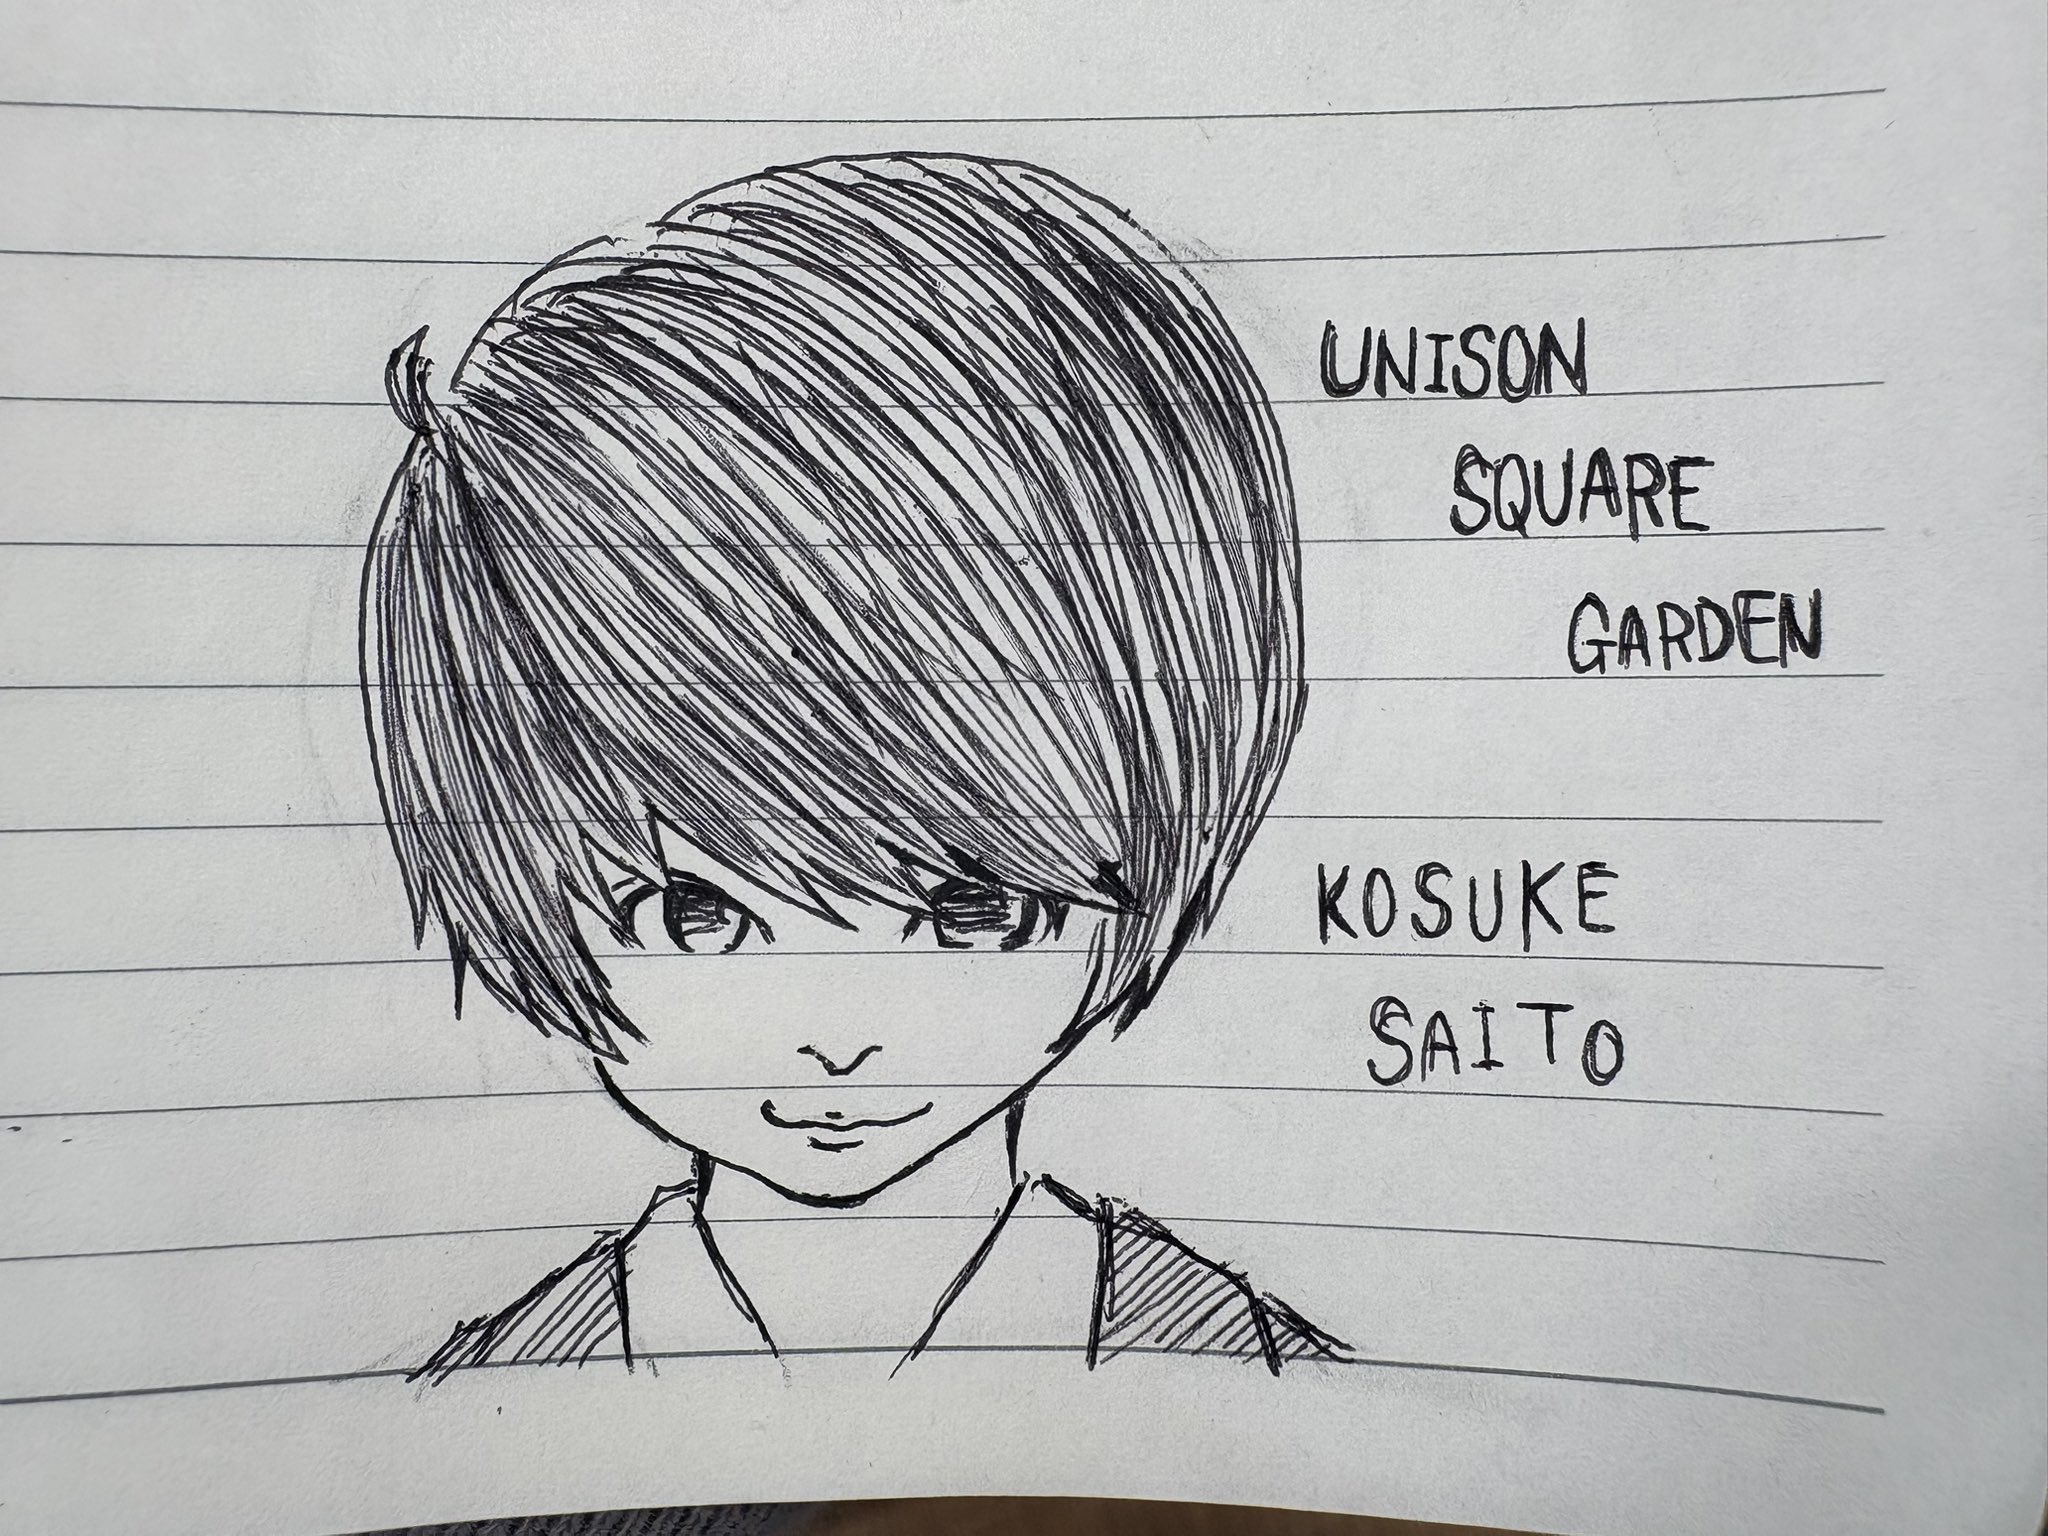 UNISON
SQUARE
GARDEN
KOSUKE
SAITO